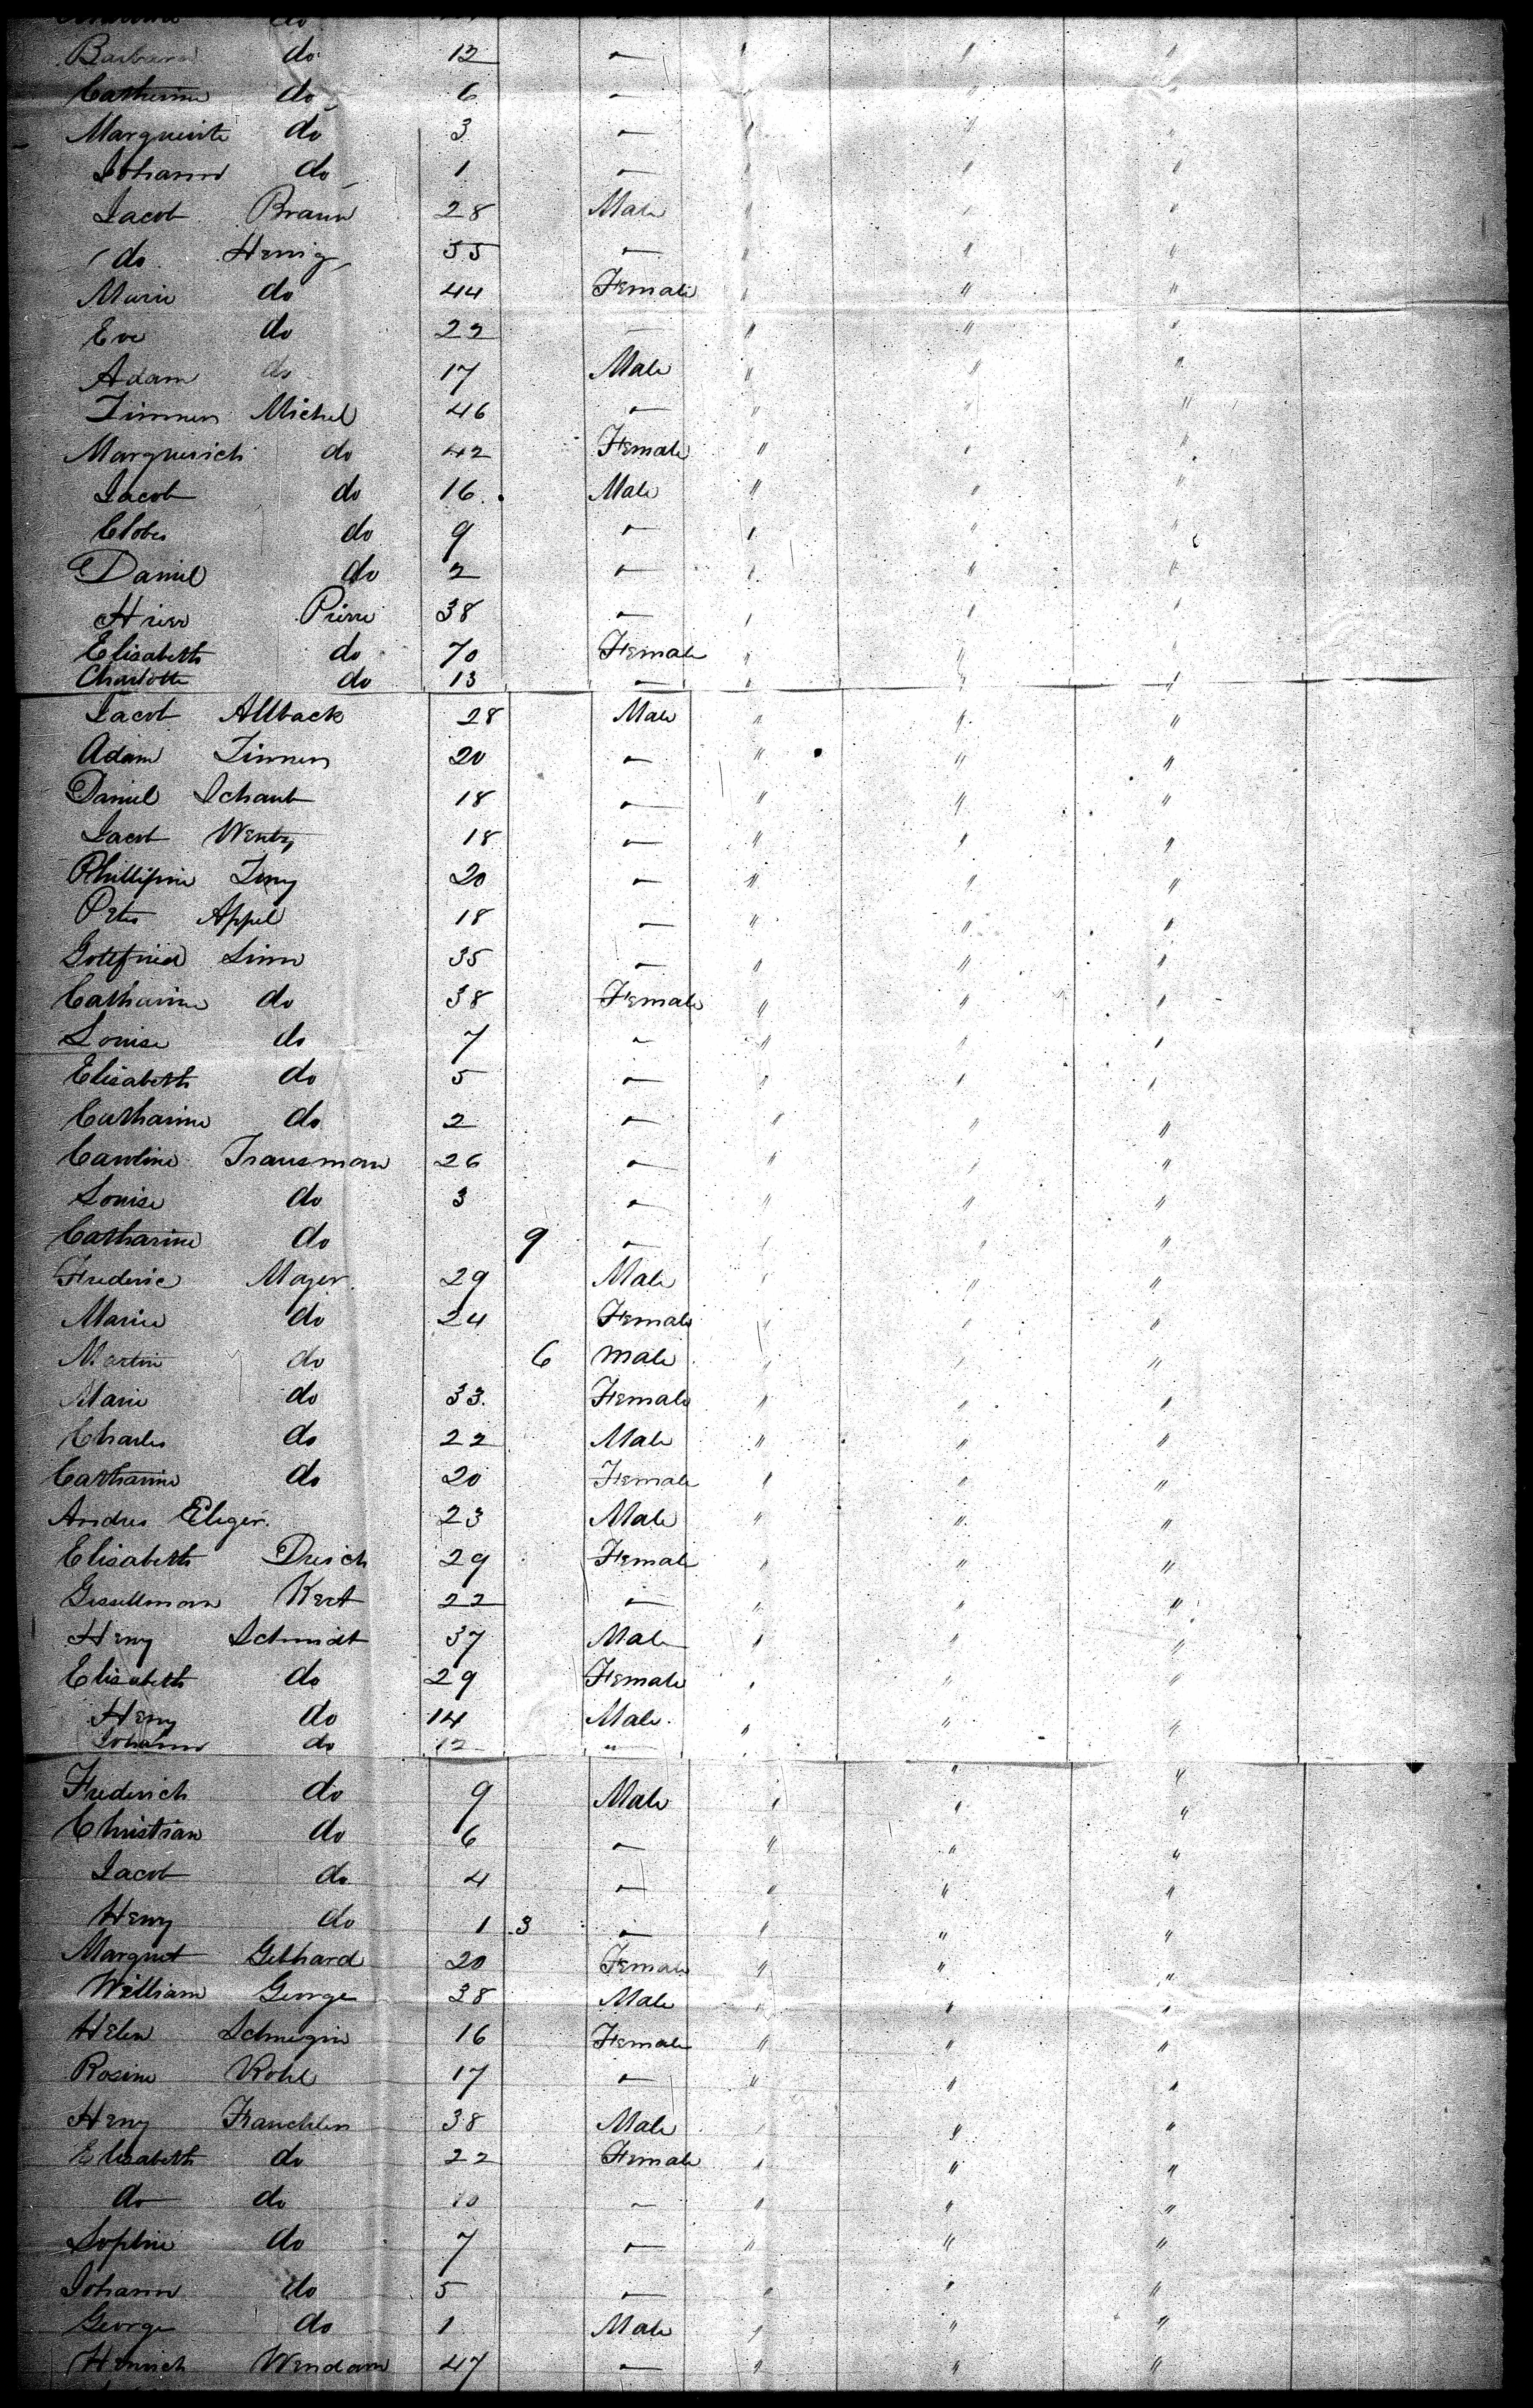 do
Barbara do 12 " " " "
Catherine do 6 " " " "
Marguerite do 3 " " " "
Johann do 1 " " " "
Jacob Braun 28 Male " " "
do Henig 55 " " " "
Marie do 44 Female " " "
Eve do 22 " " " "
Adam do 17 Male " " "
Zimmer Michel 46 " " " "
Marguerich do 42 Female " " "
Jacob do 16 Male " " "
Clobes do 9 " " " "
Daniel do 2 " " " "
Hrier Pierre 38 " " " "
Elisabeth do 70 Female " " "
Charlotte do 13 " " " "
Jacob Allback 28 Male " " "
Adam Zimmer 20 " " " "
Daniel Schaub 18 " " " "
Jacob Wentz 18 " " " "
Phillipine 20 " " " "
Peter Appel 18 " " " "
Gottfried Linn 35 " " " "
Catharine do 38 Female " " "
Louise do 7 " " " "
Elisabeth do 5 " " " "
Catharine do 2 " " " "
Caroline Trausman 26 " " " "
Louise do 3 " " " "
Catharine do 9 " " " "
Frederic Mayer 29 Male " " "
Marie do 24 Female " " "
Martin do 6 male " " "
Marie do 33 Female " " "
Charles do 22 Male " " "
Catharine do 20 Female " " "
Andres Eliger 23 Male " " "
Elisabeth Dreich 29 Female " " "
Gesellmann Kert 22 " " " "
Heny Schmidt 37 Male " " "
Elisabeth do 29 Female " " "
Heny do 14 Male " " "
Johann do 12 "
Frederich do 9 Male " " "
Christian do 6 " " " "
Jacob do 4 " " " "
Heny do 1 3 " " " "
Margret Gebhard 20 Female " " "
William George 38 Male " " "
Helen Schmegin 16 Female " " "
Rosine Kohl 17 " " " "
Heny Franchlen 38 Male " " "
Elisabeth do 22 Female " " "
do do 10 " " " "
Sophie do 7 " " " "
Johann do 5 " " " "
George do 1 Male " " "
Heinrich Wendam 47 " " " "